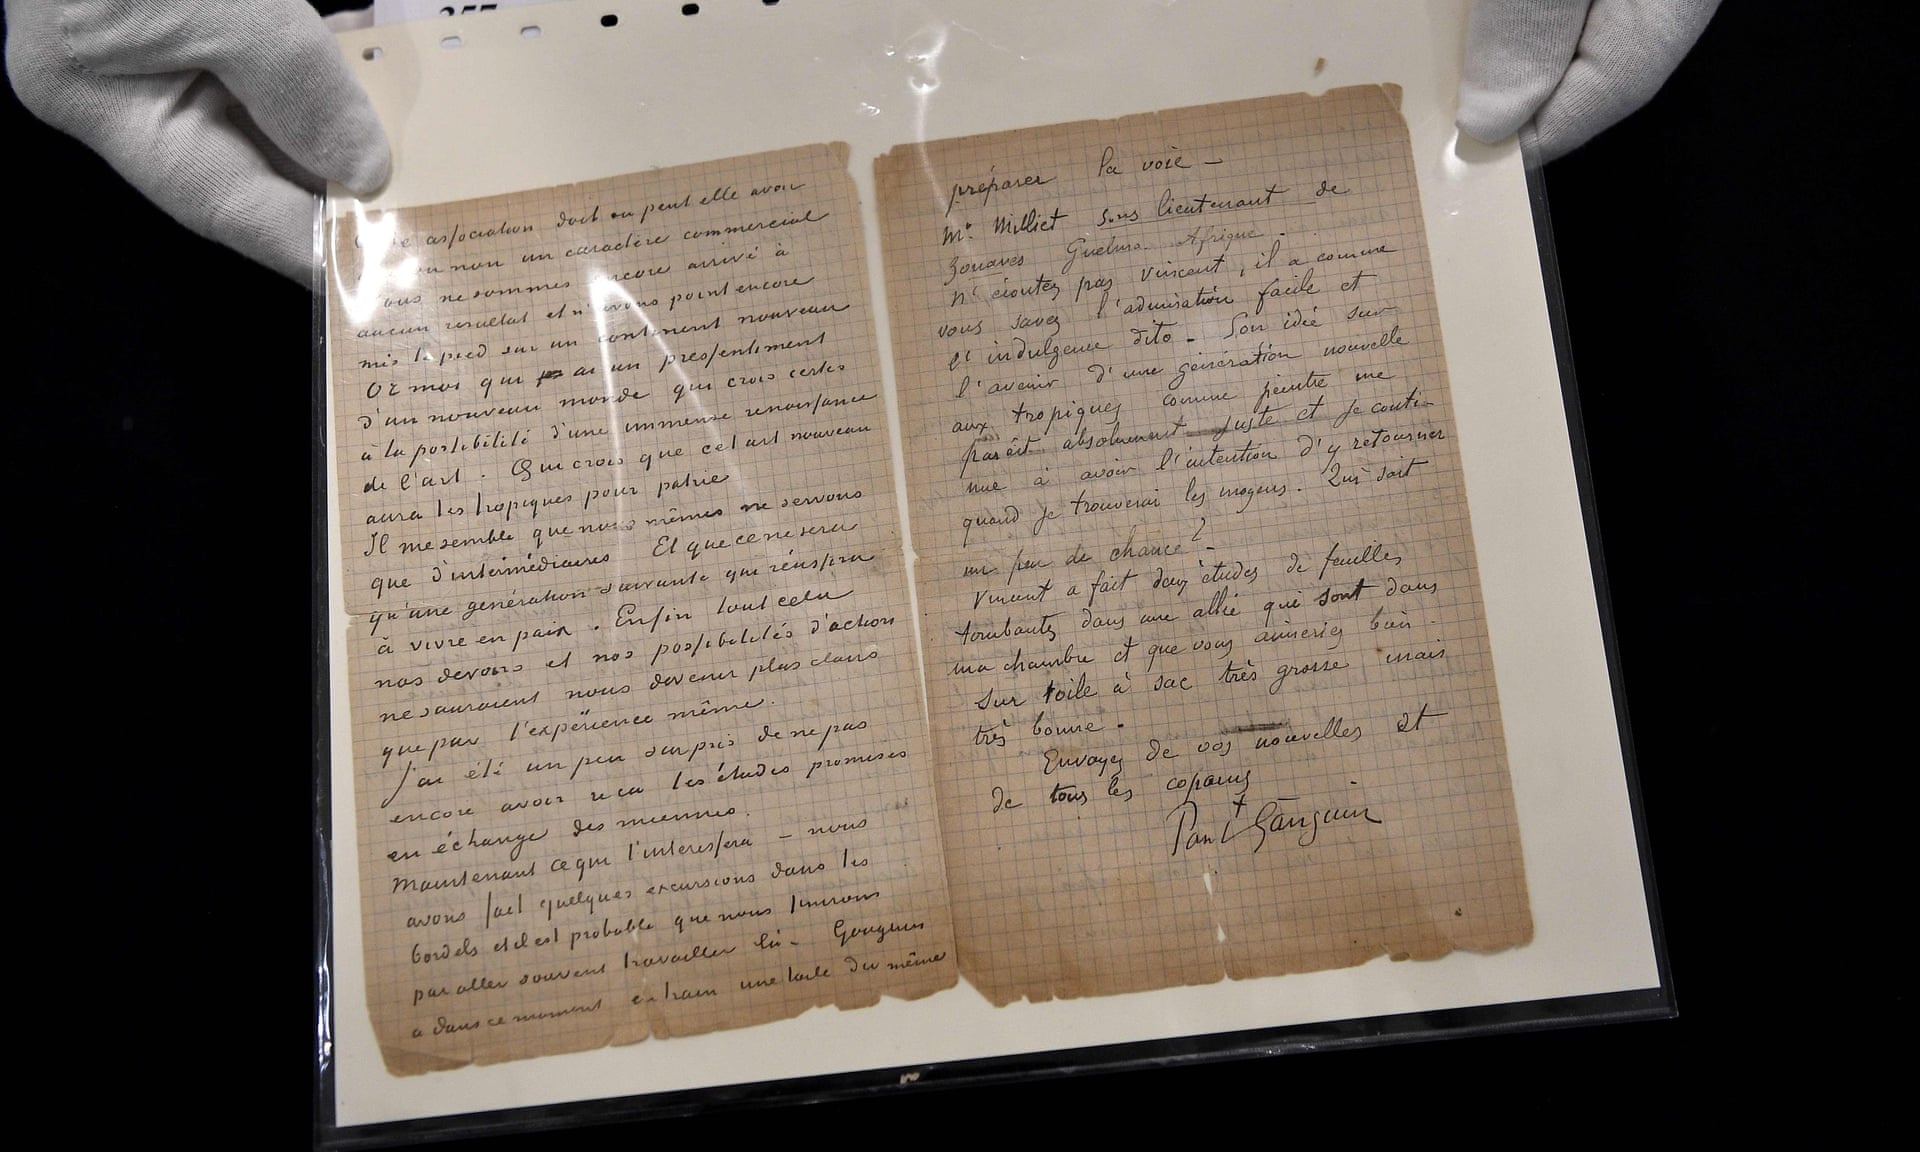 257
association doit ou peut elle avoir
ou non un caractère commercial
nous ne sommes encore arrivé à
aucun resultat et n'avons point encore
mis le pied sur un continent nouveau
Or moi qui ai un pressentiment
d'un nouveau monde qui crois certes
à la possibilité d'une immense renaissance
de l'art. Qui crois que cet art nouveau
aura les tropiques pour patrie
Il me semble que nous mêmes ne servons
que d'intermédiaires Et que ce ne sera
qu'une génération suivante qui réussira
à vivre en paix. Enfin tout cela
nos devoirs et nos possibilités d'action
ne sauraient nous devenir plus clairs
que par l'expérience même.
J'ai été un peu surpris de ne pas
encore avoir reçu les études promises
en échange des miennes.
Maintenant ce qui t'interessera – nous
avons fait quelques excursions dans les
bordels et il est probable que nous finirons
par aller souvent travailler là – Gauguin
a dans ce moment en train une toile du même
préparer la voie –
Mr. Milliet sous lieutenant de
Zouaves Guelma. Afrique.
N' écoutez pas Vincent, il a comme
vous savez l'admiration facile et
l' indulgence dito – Son idée sur
l'avenir d'une génération nouvelle
aux tropiques comme peintre me
parait absolument juste et je conti-
nue à avoir l'intention d'y retourner
quand je trouverai les moyens. Qui sait
un peu de chance?
Vincent a fait deux études de feuilles
tombantes dans une allée qui sont dans
ma chambre et que vous aimeriez bien.
sur toile à sac très grosse mais
très bonne.
Envoyez de vos nouvelles et
de tous les copains
Paul Gauguin